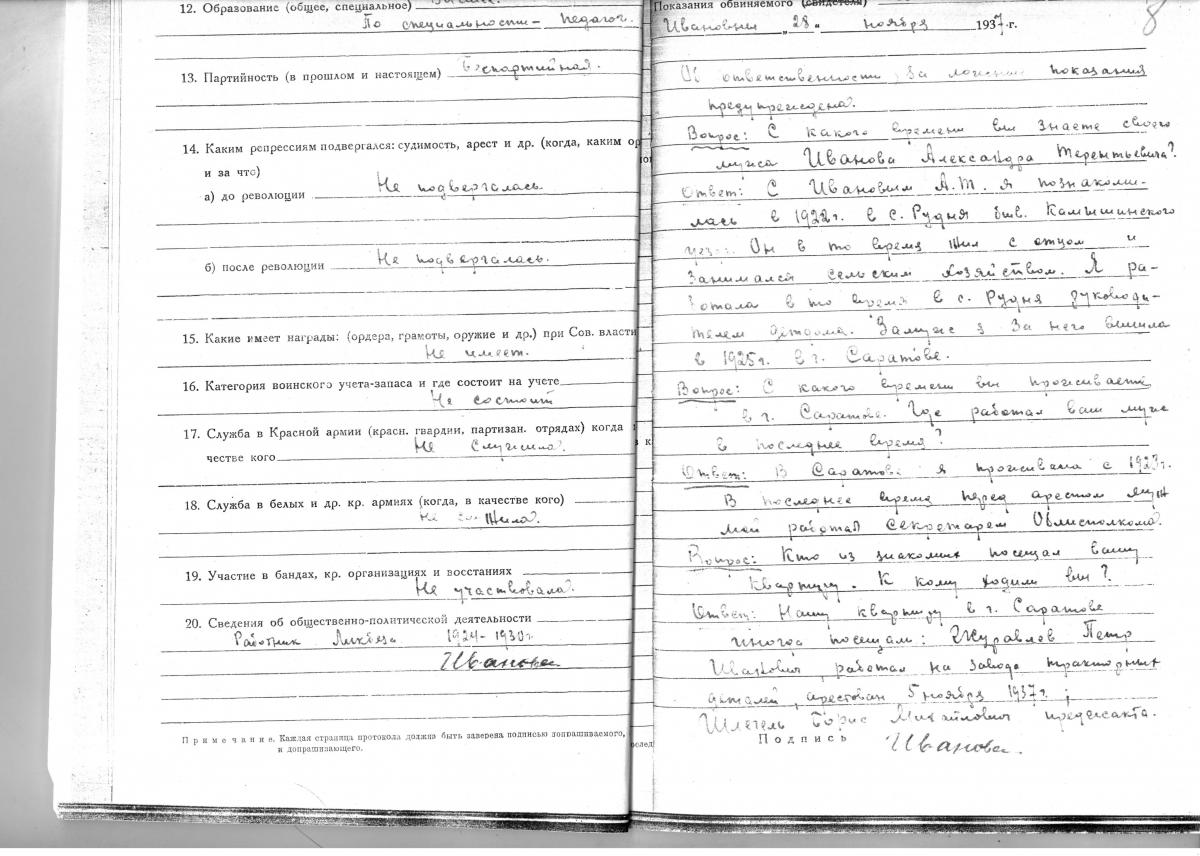 12. Образование (общее, специальное)
По специальности – педагог.
13. Партийность (в прошлом и настоящем) Беспартийная.
14. Каким репрессиям подвергался: судимость, арест и др. (когда, каким ор
и за что)
а) до революции Не подвергалась.
б) после революции Не подвергалась.
15. Какие имеет награды: (ордера, грамоты, оружие и др.) при Сов. власти
Не имеет.
16. Категория воинского учета-запаса и где состоит на учете
Не состоит
17. Служба в Красной армии (красн. гвардии, партизан. отрядах) когда
честве кого Не служила.
18. Служба в белых и др. кр. армиях (когда, в качестве кого)
Не служила.
19. Участие в бандах, кр. организациях и восстаниях
Не участвовала.
20. Сведения об общественно-политической деятельности
Работник Ликбеза 1924-1930г.
Иванова
Примечание. Каждая страница протокола должна быть заверена подписью допрашиваемого,
и допрашивающего.
Показания обвиняемого (свидетеля)
8
Ивановны „28„ ноября 1937 г.
Об ответственности за ложные показания
предупреждена.
Вопрос: С какого времени вы знаете своего
мужа Иванова Александра Терентьевича?
Ответ: С Ивановым А.Т. я познакоми-
лась в 1922г. в с. Рудня быв. Камышинского
уез. Он в то время жил с отцом и
занимался сельским хозяйством. Я ра-
ботала в то время в с. Рудня руководи-
телем детдома. Замуж я за него вышла
в 1925г. в г. Саратове.
Вопрос: С какого времени вы проживаете
в г. Саратове. Где работал ваш муж
в последнее время?
Ответ: В Саратове я проживала с 1923г.
В последнее время перед арестом муж
мой работал секретарем Облисполкома.
Вопрос: Кто из знакомых посещал вашу
квартиру. К кому ходили вы?
Ответ: Нашу квартиру в г. Саратове
иногда посещали: Журавлев Петр
Иванович, работал на заводе тракторных
деталей, арестован 5 ноября 1937г.;
Шлегель Борис Михайлович
Подпись Иванова.